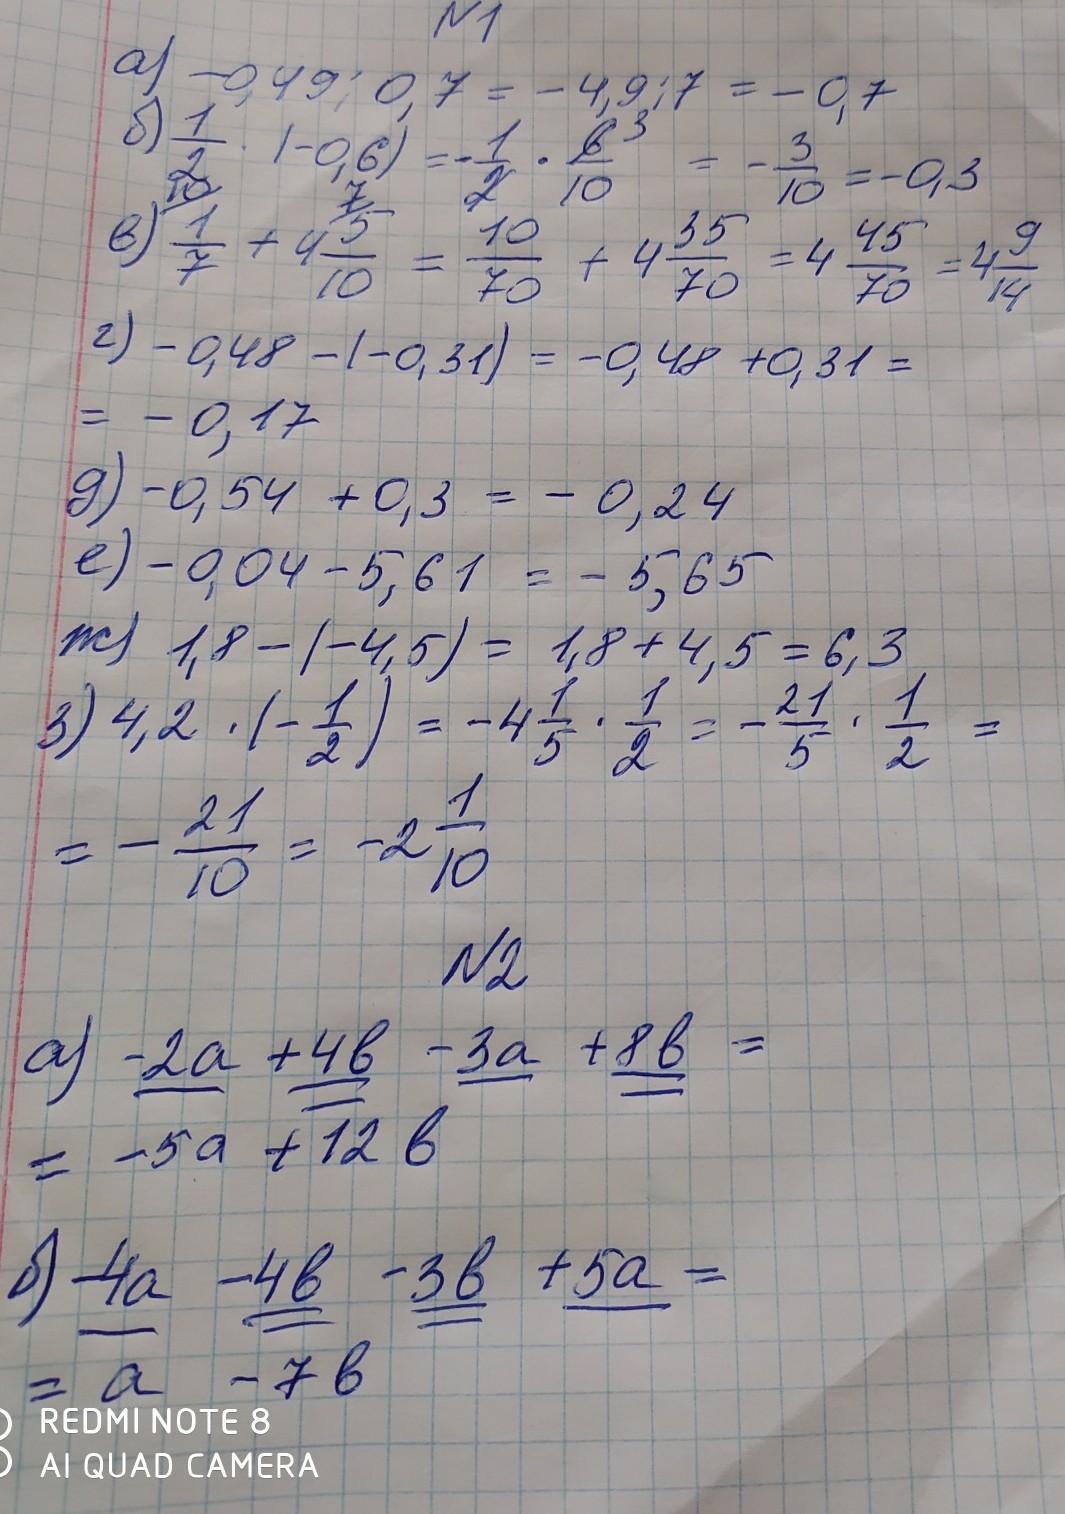 N1
а) -0,49 : 0,7 = -4,9 : 7 = -0,7
б) 1/2 · (-0,6) = -1/2 · 6/10 3 = -3/10 = -0,3
10 7
в) 1/7 + 4 5/10 = 10/70 + 4 35/70 = 4 45/70 = 4 9/14
г) -0,48 - (-0,31) = -0,48 + 0,31 =
= -0,17
д) -0,54 + 0,3 = -0,24
е) -0,04 - 5,61 = -5,65
ж) 1,8 - (-4,5) = 1,8 + 4,5 = 6,3
з) 4,2 · (-1/2) = -4 1/5 · 1/2 = -21/5 · 1/2 =
= -21/10 = -2 1/10
N2
а) -2а + 4в - 3а + 8в =
= -5а + 12в
б) -4а - 4в - 3в + 5а =
= а - 7в
REDMI NOTE 8
AI QUAD CAMERA